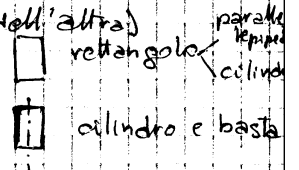 dell'altra)
rettangolo
paralle
lepipe
cilind
cilindro e basta